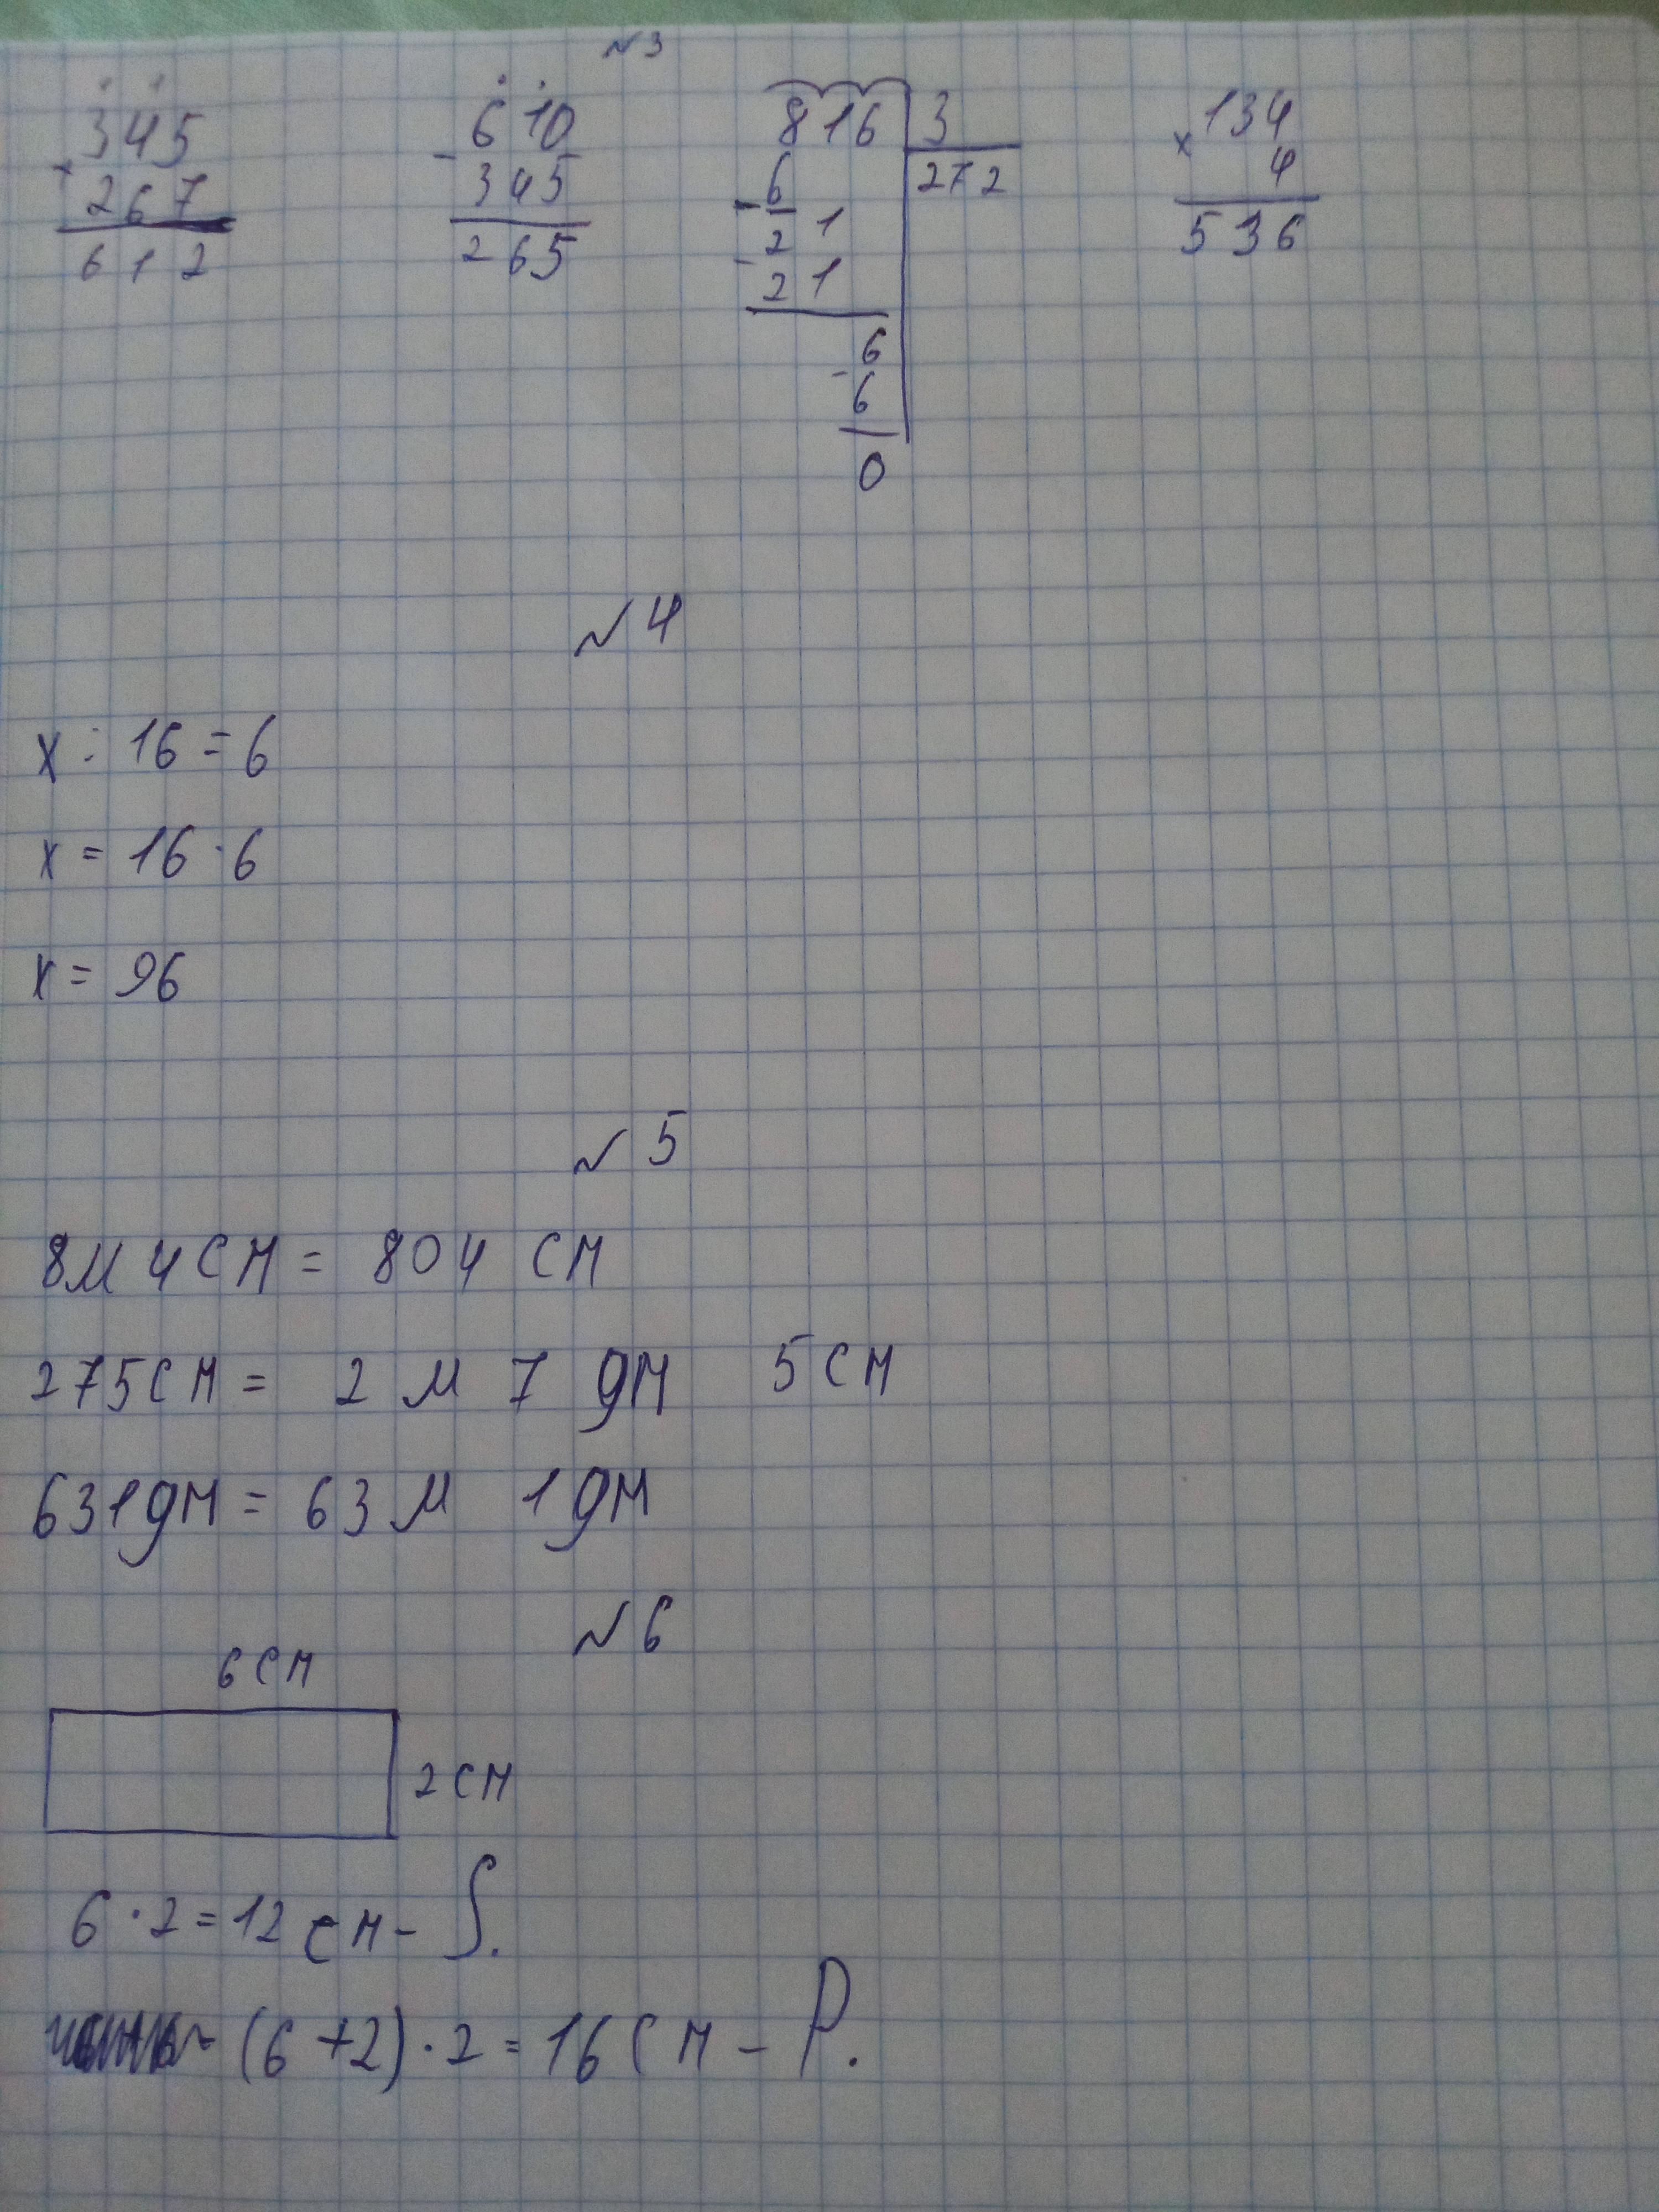 №3
345 610 816 3 134
+ - × 4
267 345 6 272
612 265 - 21 536
- 21
6
- 6
0
№4
x : 16 = 6
x = 16 · 6
x = 96
№5
8м 4см = 804 см
275см = 2 м 7 дм 5см
631дм = 63м 1дм
№6
6см
2см
6 · 2 = 12 см - S.
(6 + 2) · 2 = 16см - P.